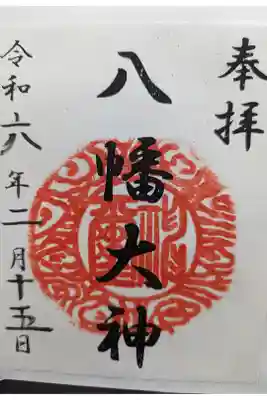 奉拝
八幡大神
令和六年二月十五日